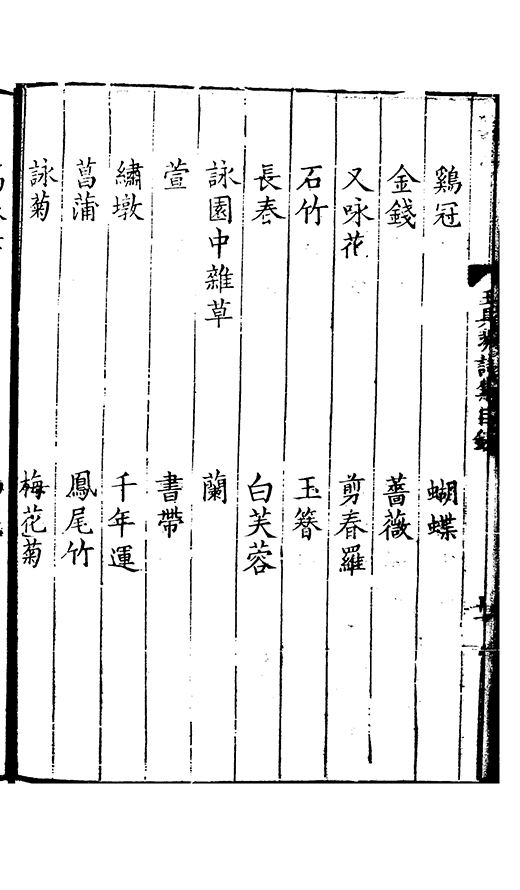 鷄冠 蝴蝶
金錢 薔薇
又咏花 剪春羅
石竹 玉簪
長春 白芙蓉
詠園中雜草 蘭
萱 書帶
繡墩 千年運
菖蒲 鳳尾竹
詠菊 梅花菊
詩集目錄